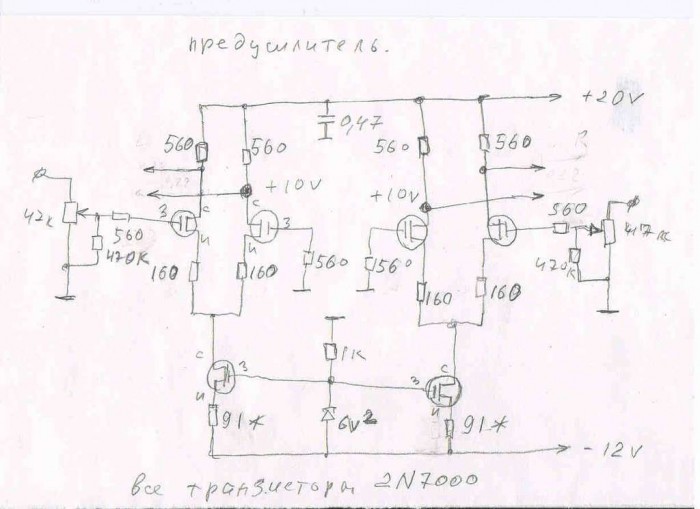 предусилитель.
+20V
0,47
560
560
560
560
+10V
+10V
47к
з
с
и
560
470К
с
з
и
560
560
560
47к
470к
160
160
160
160
1К
с
з
и
с
з
и
91*
6V2
91*
-12V
все транзисторы 2N7000